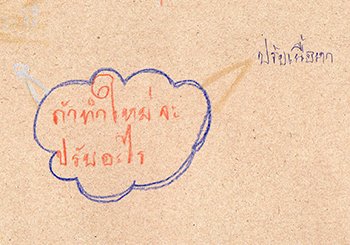 ถ้าทำใหม่จะ
ปรับอะไร
ปรับเนื้อหา